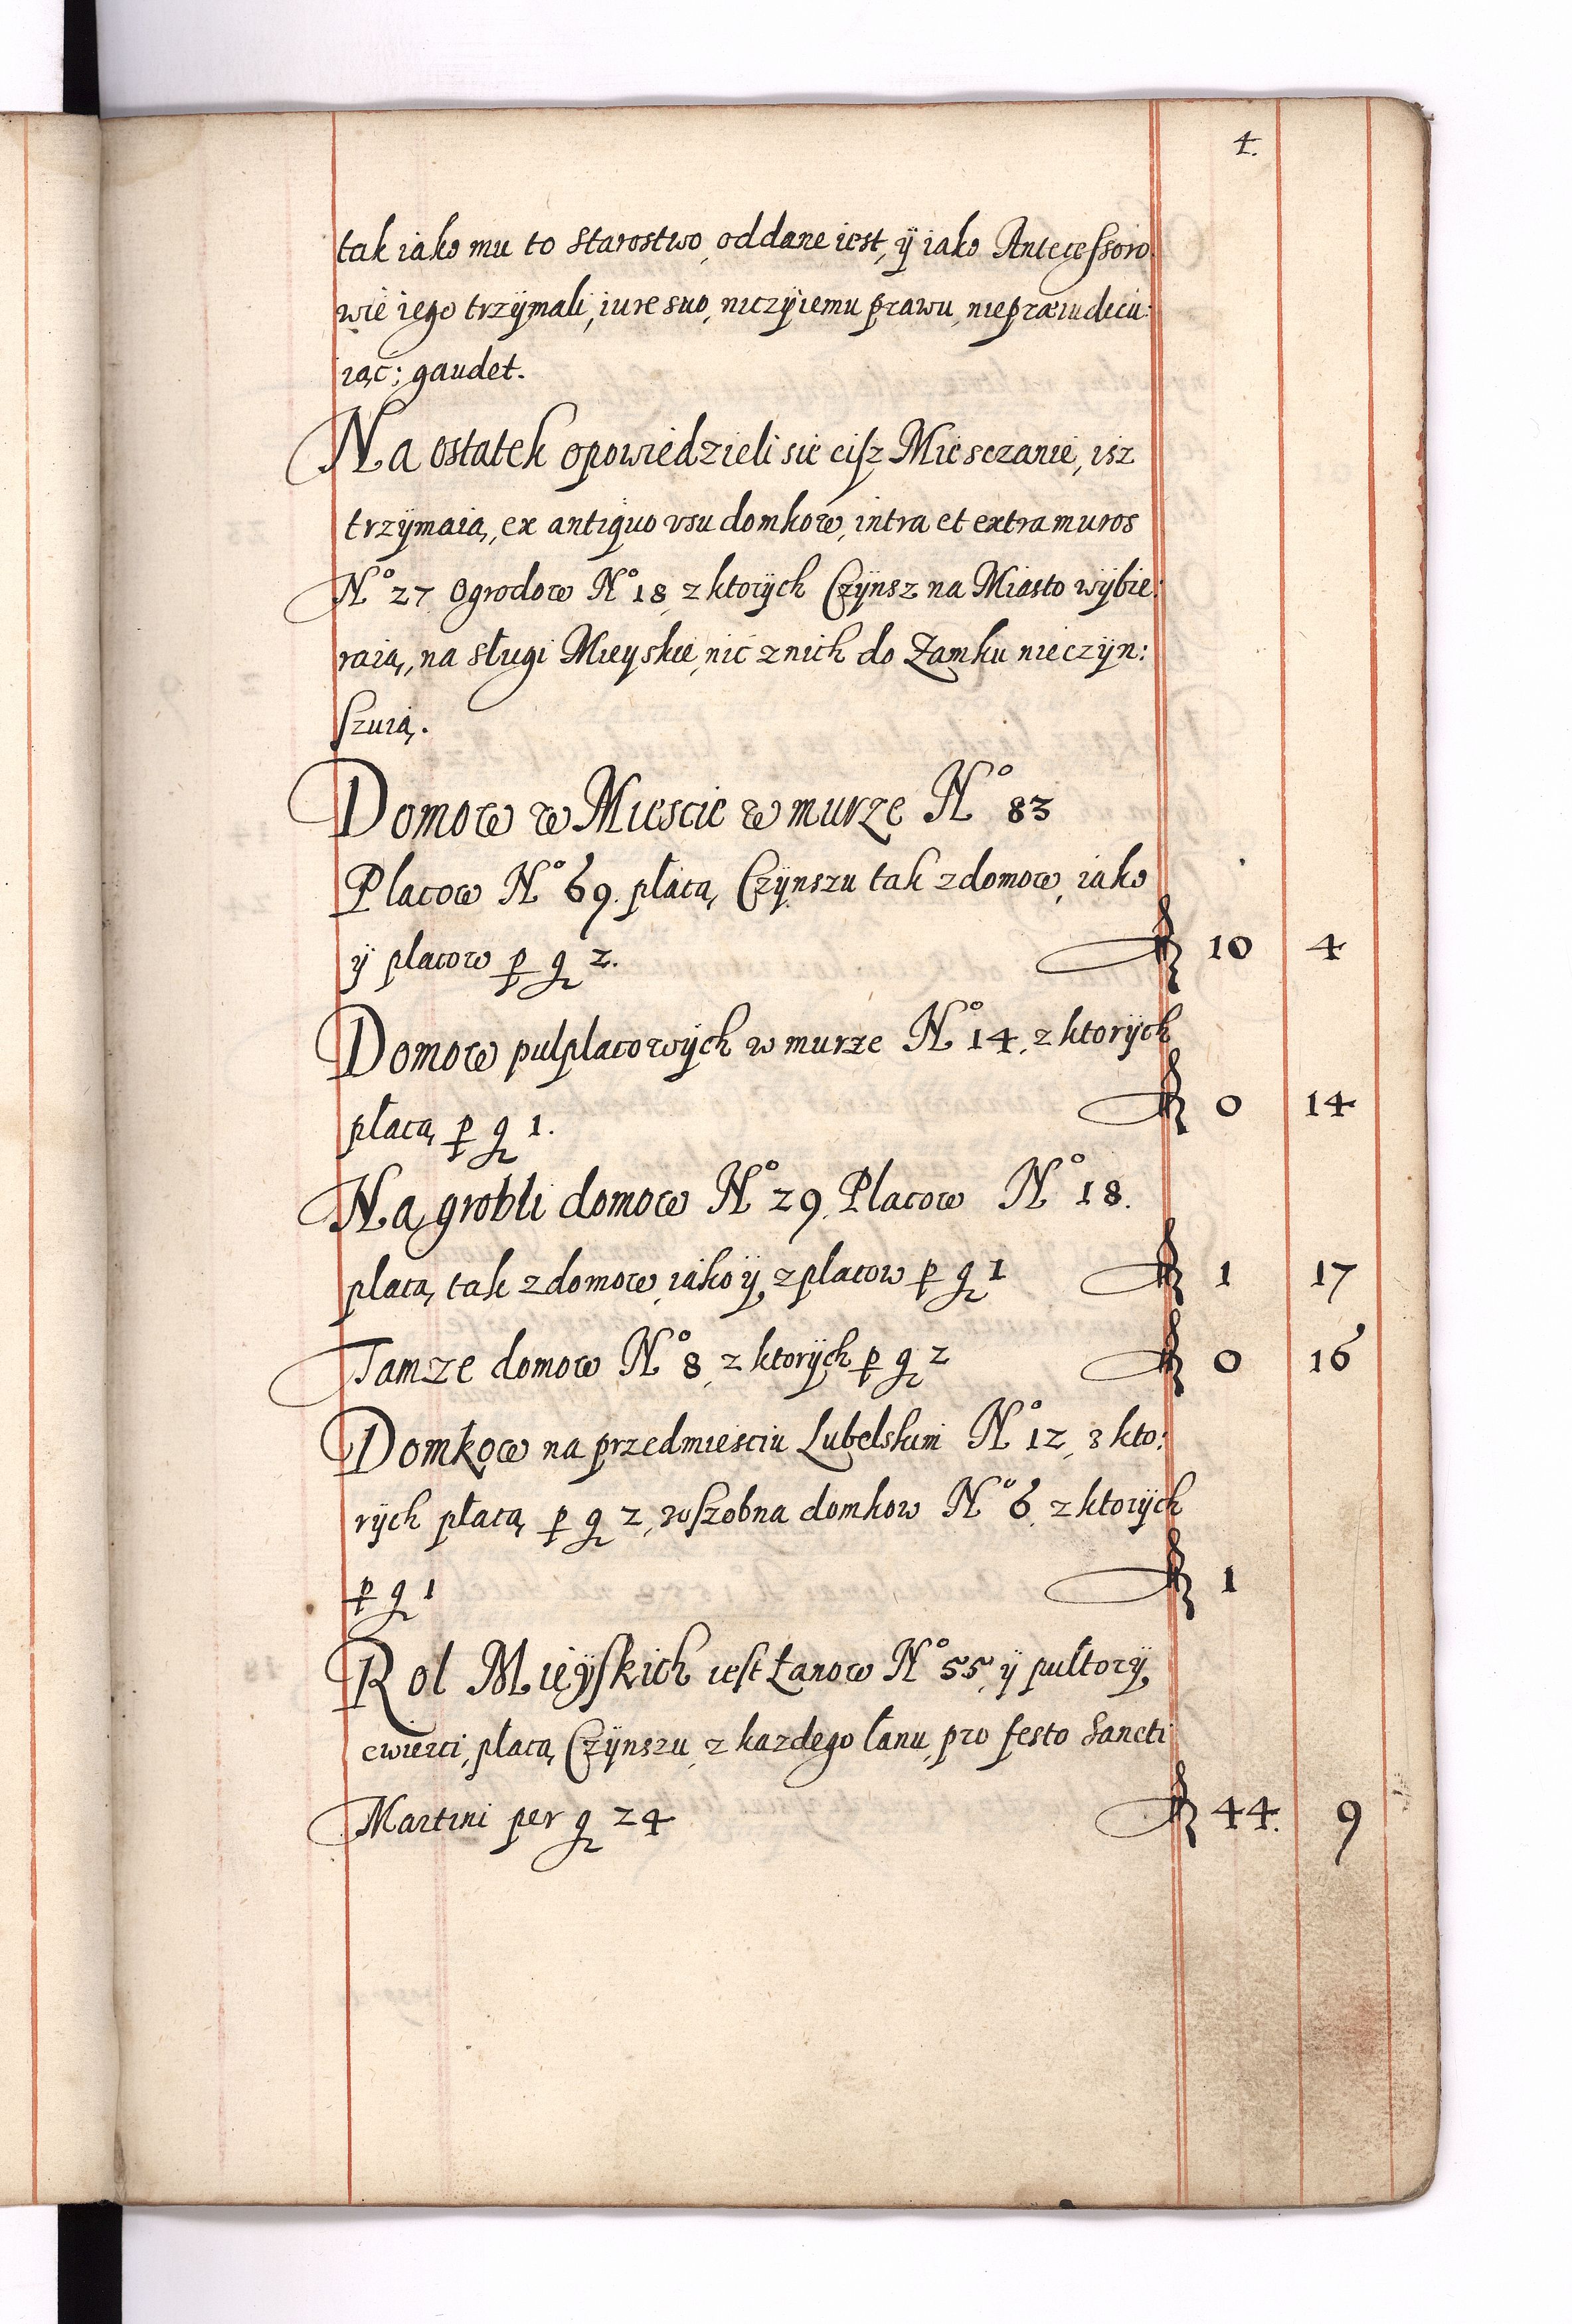 4.
tak iako mu to Starostwo, oddane iest, ÿ iako Antecessoro:
wie iego trzÿmali, iure suo, niczÿiemu prawu, niepræiudicu:
iąc; gaudet.
Na ostatek opowiedzieli się cisz Miesczanie, isz
trzÿmaią, ex antiquo vsu domkow, intra et extra muros
Nº 27. Ogrodow Nº 18, z ktorÿch Czÿnsz na Miasto wÿbie:
raią, na sługi Mieyskie, nic z nich do Zamku nieczÿn:
szuią.
Domow w Miescie w murze Nº 83
Placow Nº 69. płacą, Czÿnszu tak z domow, iako
ÿ placow p gr 2. fl 10 4
Domow pulplacowÿch w murze Nº 14, z ktorÿch
płacą p gr 1. fl 0 14
Na grobli domow Nº 29. Placow Nº 18.
płacą, tak z domow, iako ÿ z placow p gr 1 fl 1 17
Tamze domow Nº 8, z ktorÿch p gr 2 fl 0 16
Domkow na przedmiesciu Lubelskim Nº 12, z kto:
rÿch płacą p gr 2, wszobna domkow Nº 6. z ktorÿch
p gr 1 fl 1
Rol Mieÿskich iest Łanow Nº 55, ÿ pułtorÿ
cwierci, płacą Czÿnszu, z kazdego łanu, pro festo Sancti
Martini per gr 24 fl 44. 9